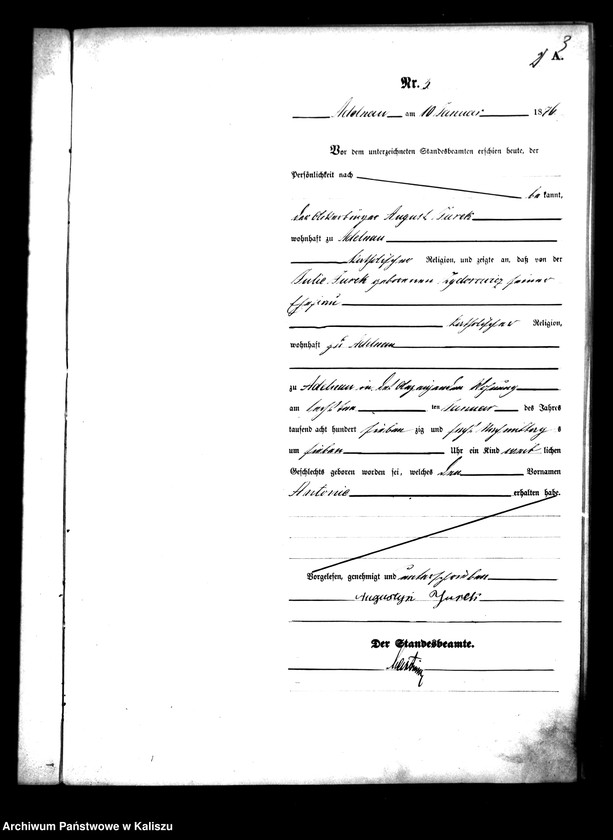 3
A.
Nr. 5
Adelnau am 10 Januar 1876
Vor dem unterzeichneten Standesbeamten erschien heute, der
Persönlichkeit nach
be kannt,
der Ackerbürger August Turek
wohnhaft zu Adelnau
katholischer Religion, und zeigte an, daß von der
Julie Turek geborenen seiner
Ehefrau
katholischer Religion,
wohnhaft zu Adelnau
zu Adelnau in der Wohnung
am ten Januar des Jahres
tausend acht hundert sieben zig und sechs s
um sieben Uhr ein Kind weib lichen
Geschlechts geboren worden sei, welches den Vornamen
Antonie erhalten habe.
Vorgelesen, genehmigt und unterschrieben
Augustyn Turek
Der Standesbeamte.
Archiwum Państwowe w Kaliszu